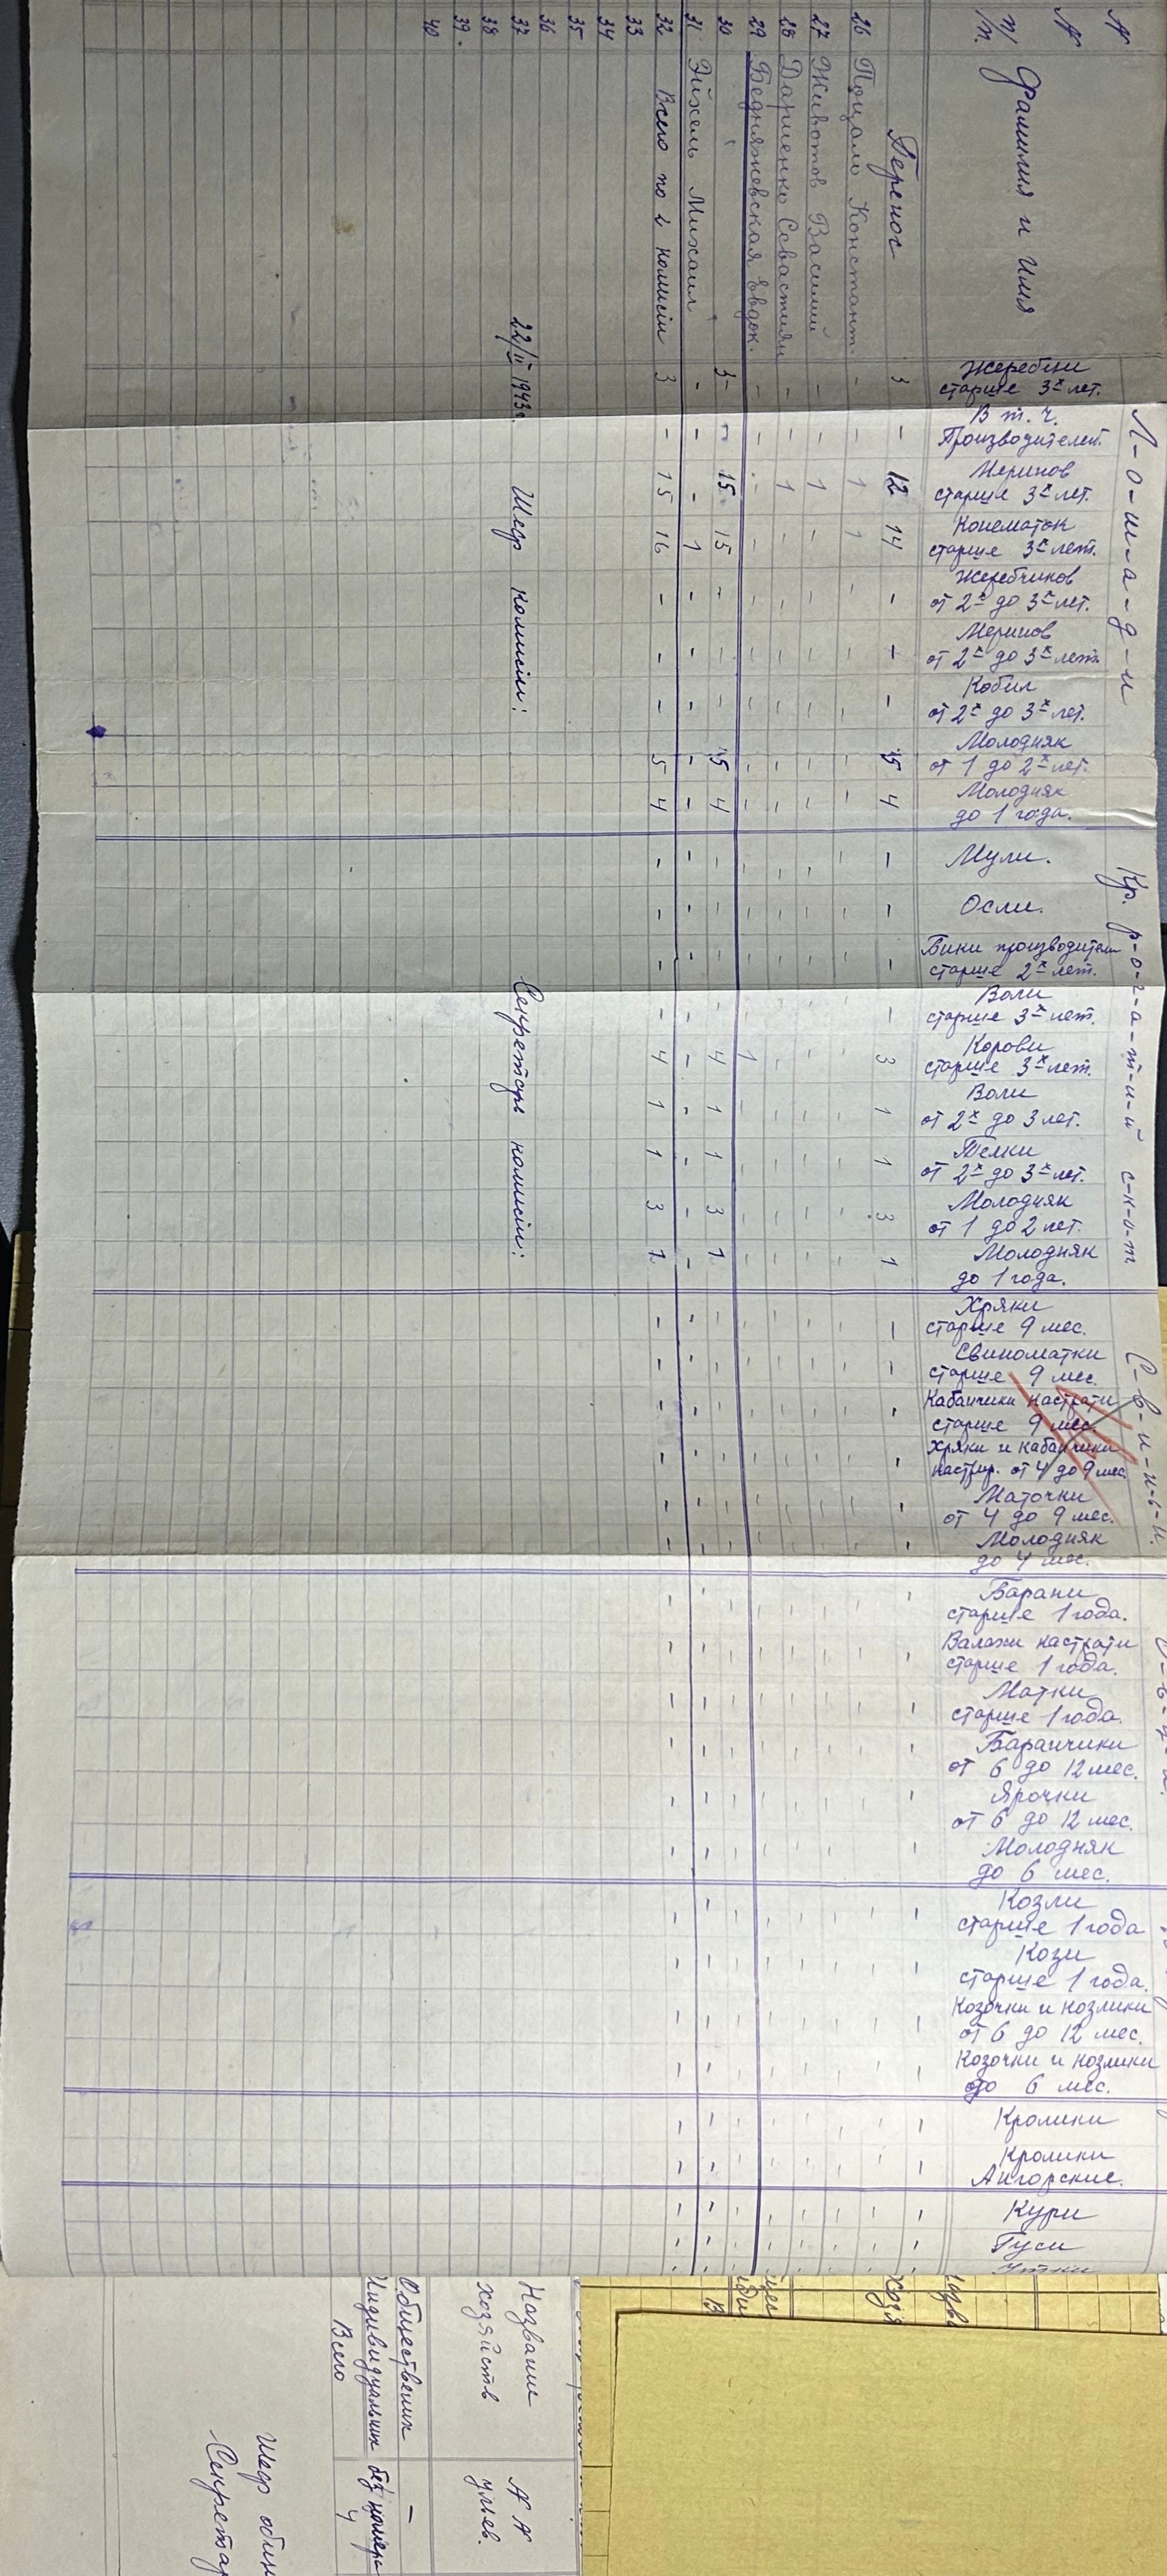 № № п/п. Фамилия и Имя
Л-о-ш-а-д-и
Жеребци старше 3х лет.
В т. ч. Производителей.
Меринов старше 3х лет.
Конематок старше 3х лет.
Жеребчиков от 2х до 3х лет.
Меринов от 2х до 3х лет.
Кобил от 2х до 3х лет.
Молодняк от 1 до 2х лет.
Молодняк до 1 года.
Мули.
Осли.
Кр. р-о-г-а-т-и-й с-к-о-т
Бики производители старше 2х лет.
Воли старше 3х лет.
Корови старше 3х лет.
Воли от 2х до 3 лет.
Телки от 2х до 3х лет.
Молодняк от 1 до 2 лет.
Молодняк до 1 года.
С-в-и-н-ь-и.
Хряки старше 9 мес.
Свиноматки старше 9 мес.
Кабанчики кастрати старше 9 мес.
Хряки и кабанчики кастрир. от 4 до 9 мес.
Маточки от 4 до 9 мес.
Молодняк до 4 мес.
Барани старше 1 года.
Валахи кастрати старше 1 года.
Матки старше 1 года.
Баранчики от 6 до 12 мес.
Ярочки от 6 до 12 мес.
Молодняк до 6 мес.
Козли старше 1 года
Кози старше 1 года.
Козочки и козлики от 6 до 12 мес.
Козочки и козлики до 6 мес.
Кролики
Кролики Ангорские.
Кури
Гуси
Утки
Перенос 3 - 12 14 - - - 5 4 - - - - 3 1 1 3 1 - - - - - - - - - - - - - - - - - - - -
26 Константин. - - 1 1 - - - - -
27 Животов Василий - - 1 - - - - - -
28 Дариенко Севастиян - - 1 - - - - - -
29 Бедняжевская Евдок. - - - - - - - - - - - - - 1 - - - -
30 3 - 15 15 - - - 5 4 - - - - 4 1 1 3 1 - - - - - -
31 Эйхель Михаил - - - 1 - - - - - - - - - - - - - -
32 Всего по 2 комисіи 3 - 15 16 - - - 5 4 - - - - 4 1 1 3 1 - - - - - -
33
34
35
36
37 22/II 1943г. Шеф комисіи: Секретарь комисіи:
38
39.
40
Название хозяйств № № ульев.
Общественних -
Индивидуальних без номера
Всего 4
Шеф
Секретар